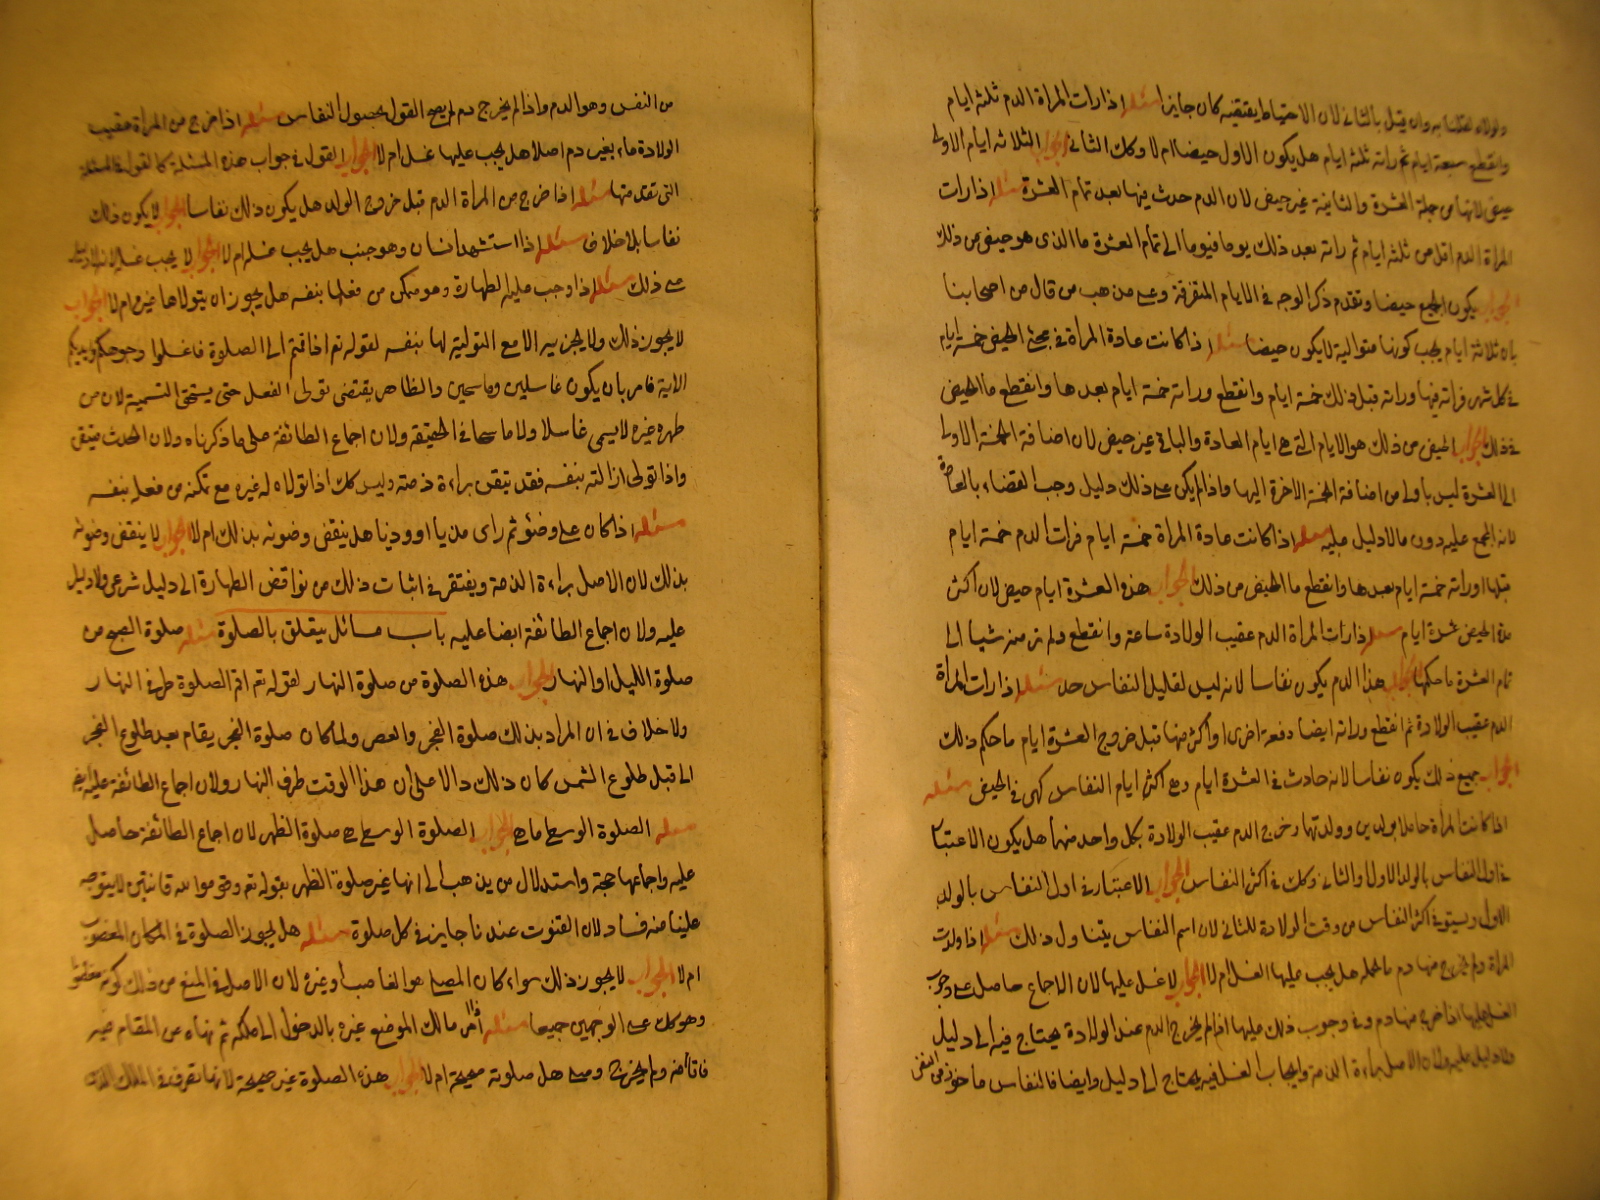 وان قيل بالثاني لان الاحتياط يقتضيه كان جايزا مسئله اذا رات المراة الدم ثلثة ايام
وانقطع سبعة ايام ثم راته ثلثة ايام هل يكون الاول حيضا ام لا وكك الثاني الجواب الثلاثة ايام الاولى
حيض لانها من جملة العشرة والثانية غير حيض لان الدم حدث فيها بعد تمام العشرة مسئله اذا رات
المراة الدم اقل من ثلثة ايام ثم راته بعد ذلك يوما فيوما الى تمام العشرة ما الذى هو حيض من ذلك
الجواب يكون الجميع حيضا وتقدم ذكر الوجه في الايام المتفرقة وعلى مذهب من قال من اصحابنا
بان ثلاثة ايام يجب كونها متوالية لا يكون حيضا مسئله اذا كانت عادة المراة في مجئ الحيض خمسة ايام
في كل شهر فراته فيها وراته قبل ذلك خمسة ايام وانقطع وراته خمسة ايام بعدها وانقطع ما الحيض
في ذلك الجواب الحيض من ذلك هو الايام التي هي ايام العادة والباقي غير حيض لان اضافة الخمسة الاولى
الى العشرة ليس باولى من اضافة الخمسة الاخرة اليها واذا لم يكن على ذلك دليل وجب القضاء بالعادة
لانه المجمع عليه دون ما لا دليل عليه مسئله اذا كانت عادة المراة خمسة ايام فرات الدم خمسة ايام
قبلها او راته خمسة ايام بعدها وانقطع ما الحيض من ذلك الجواب هذه العشرة ايام حيض لان اكثر
مدة الحيض عشرة ايام مسئله اذا رات المراة الدم عقيب الولادة ساعة وانقطع ولم تر منه شيا الى
تمام العشرة ما حكمها الجواب هذا الدم يكون نفاسا لانه ليس لقليل النفاس حد مسئله اذا رات المراة
الدم عقيب الولادة ثم انقطع وراته ايضا دفعة اخرى او اكثر منها قبل خروج العشرة ايام ما حكم ذلك
الجواب جميع ذلك يكون نفاسا لانه حادث في العشرة ايام وهي اكثر ايام النفاس كهى في الحيض مسئله
اذا كانت المراة حاملا بولدين وولدتهما وخرج الدم عقيب الولادة بكل واحد منهما هل يكون الاعتبار
في اول النفاس بالولد الاول والثاني وكك في اكثر النفاس الجواب الاعتبار في اول النفاس بالولد
الاول ويستوفي اكثر النفاس من وقت الولادة للثاني لان اسم النفاس يتناول ذلك مسئله اذا ولدت
المراة ولم يخرج منها دم ما حكمه هل يجب عليها الغسل ام لا الجواب لا غسل عليها لان الاجماع حاصل على وجوب
الغسل عليها اذا خرج منها دم وفي وجوب ذلك عليها اذا لم يخرج الدم عند الولادة يحتاج فيه الى دليل
ولا دليل عليه ولان الاصل براءة الذمة وايجاب الغسل فيه يحتاج الى دليل وايضا فالنفاس ماخوذ من النفس
من النفس وهو الدم واذا لم يخرج دم لم يصح القول بحصول النفاس مسئله اذا خرج من المراة عقيب
الولادة ماء بغير دم اصلا هل يجب عليها غسل ام لا الجواب القول في جواب هذه المسئلة كالقول في المسئلة
التى تقدمتها مسئله اذا خرج من المراة الدم قبل خروج الولد هل يكون ذلك نفاسا الجواب لا يكون ذلك
نفاسا بلا خلاف مسئله اذا استشهد انسان وهو جنب هل يجب غسله ام لا الجواب لا يجب غسله لانه لا دليل
على ذلك مسئله اذا وجب عليه الطهارة وهو متمكن من فعلها بنفسه هل يجوز ان يتولاها غيره ام لا الجواب
لا يجوز ذلك ولا يجزيه الا مع التولية لها بنفسه لقوله تع اذا قمتم الى الصلوة فاغسلوا وجوهكم وايديكم
الاية فامر بان يكون غاسلين وماسحين والظاهر يقتضى تولى الفعل حتى يستحق التسمية لان من
طهره غيره لا يسمى غاسلا ولا ماسحا في الحقيقة ولان اجماع الطائفة على ما ذكرناه ولان الحدث متيقن
واذا تولى ازالته بنفسه فقد تيقن براءة ذمته وليس كك اذا تولاه له غيره مع تمكنه من فعله بنفسه
مسئله اذا كان على وضوء ثم راى مذيا او وديا هل ينقض وضوئه بذلك ام لا الجواب لا ينقض وضوئه
بذلك لان الاصل براءة الذمة ويفتقر في اثبات ذلك من نواقض الطهارة الى دليل شرعى ولا دليل
عليه ولان اجماع الطائفة ايضا عليه باب مسائل يتعلق بالصلوة مسئله صلوة الصبح من
صلوة الليل او النهار الجواب هذه الصلوة من صلوة النهار لقوله تع اقم الصلوة طرفي النهار
ولا خلاف في ان المراد بذلك صلوة الفجر والعصر ولما كان صلوة الفجر يقام بعد طلوع الفجر
الى قبل طلوع الشمس كان ذلك دالا على ان هذا الوقت طرف النهار ولان اجماع الطائفة عليه ايضا
مسئله الصلوة الوسطى ما هي الجواب الصلوة الوسطى هي صلوة الظهر لان اجماع الطائفة حاصل
عليه واجماعها حجة واستدلال من يذهب الى انها غير صلوة الظهر بقوله تع وقوموا لله قانتين لا يتوجه
علينا منه فساد لان القنوت عندنا جايز في كل صلوة مسئله هل يجوز الصلوة في المكان المغصوب
ام لا الجواب لا يجوز ذلك سواء كان المصلى هو الغاصب او غيره لان الاصل في المنع من ذلك كونه مغصوبا
وهو كك على الوجهين جميعا مسئله اذا امر مالك الموضع غيره بالدخول الى ملكه ثم نهاه عن المقام فيه
فاقام فيه ولم يخرج وصلى هل صلوته صحيحة ام لا الجواب هذه الصلوة غير صحيحة لانها تصرف في الملك الذى